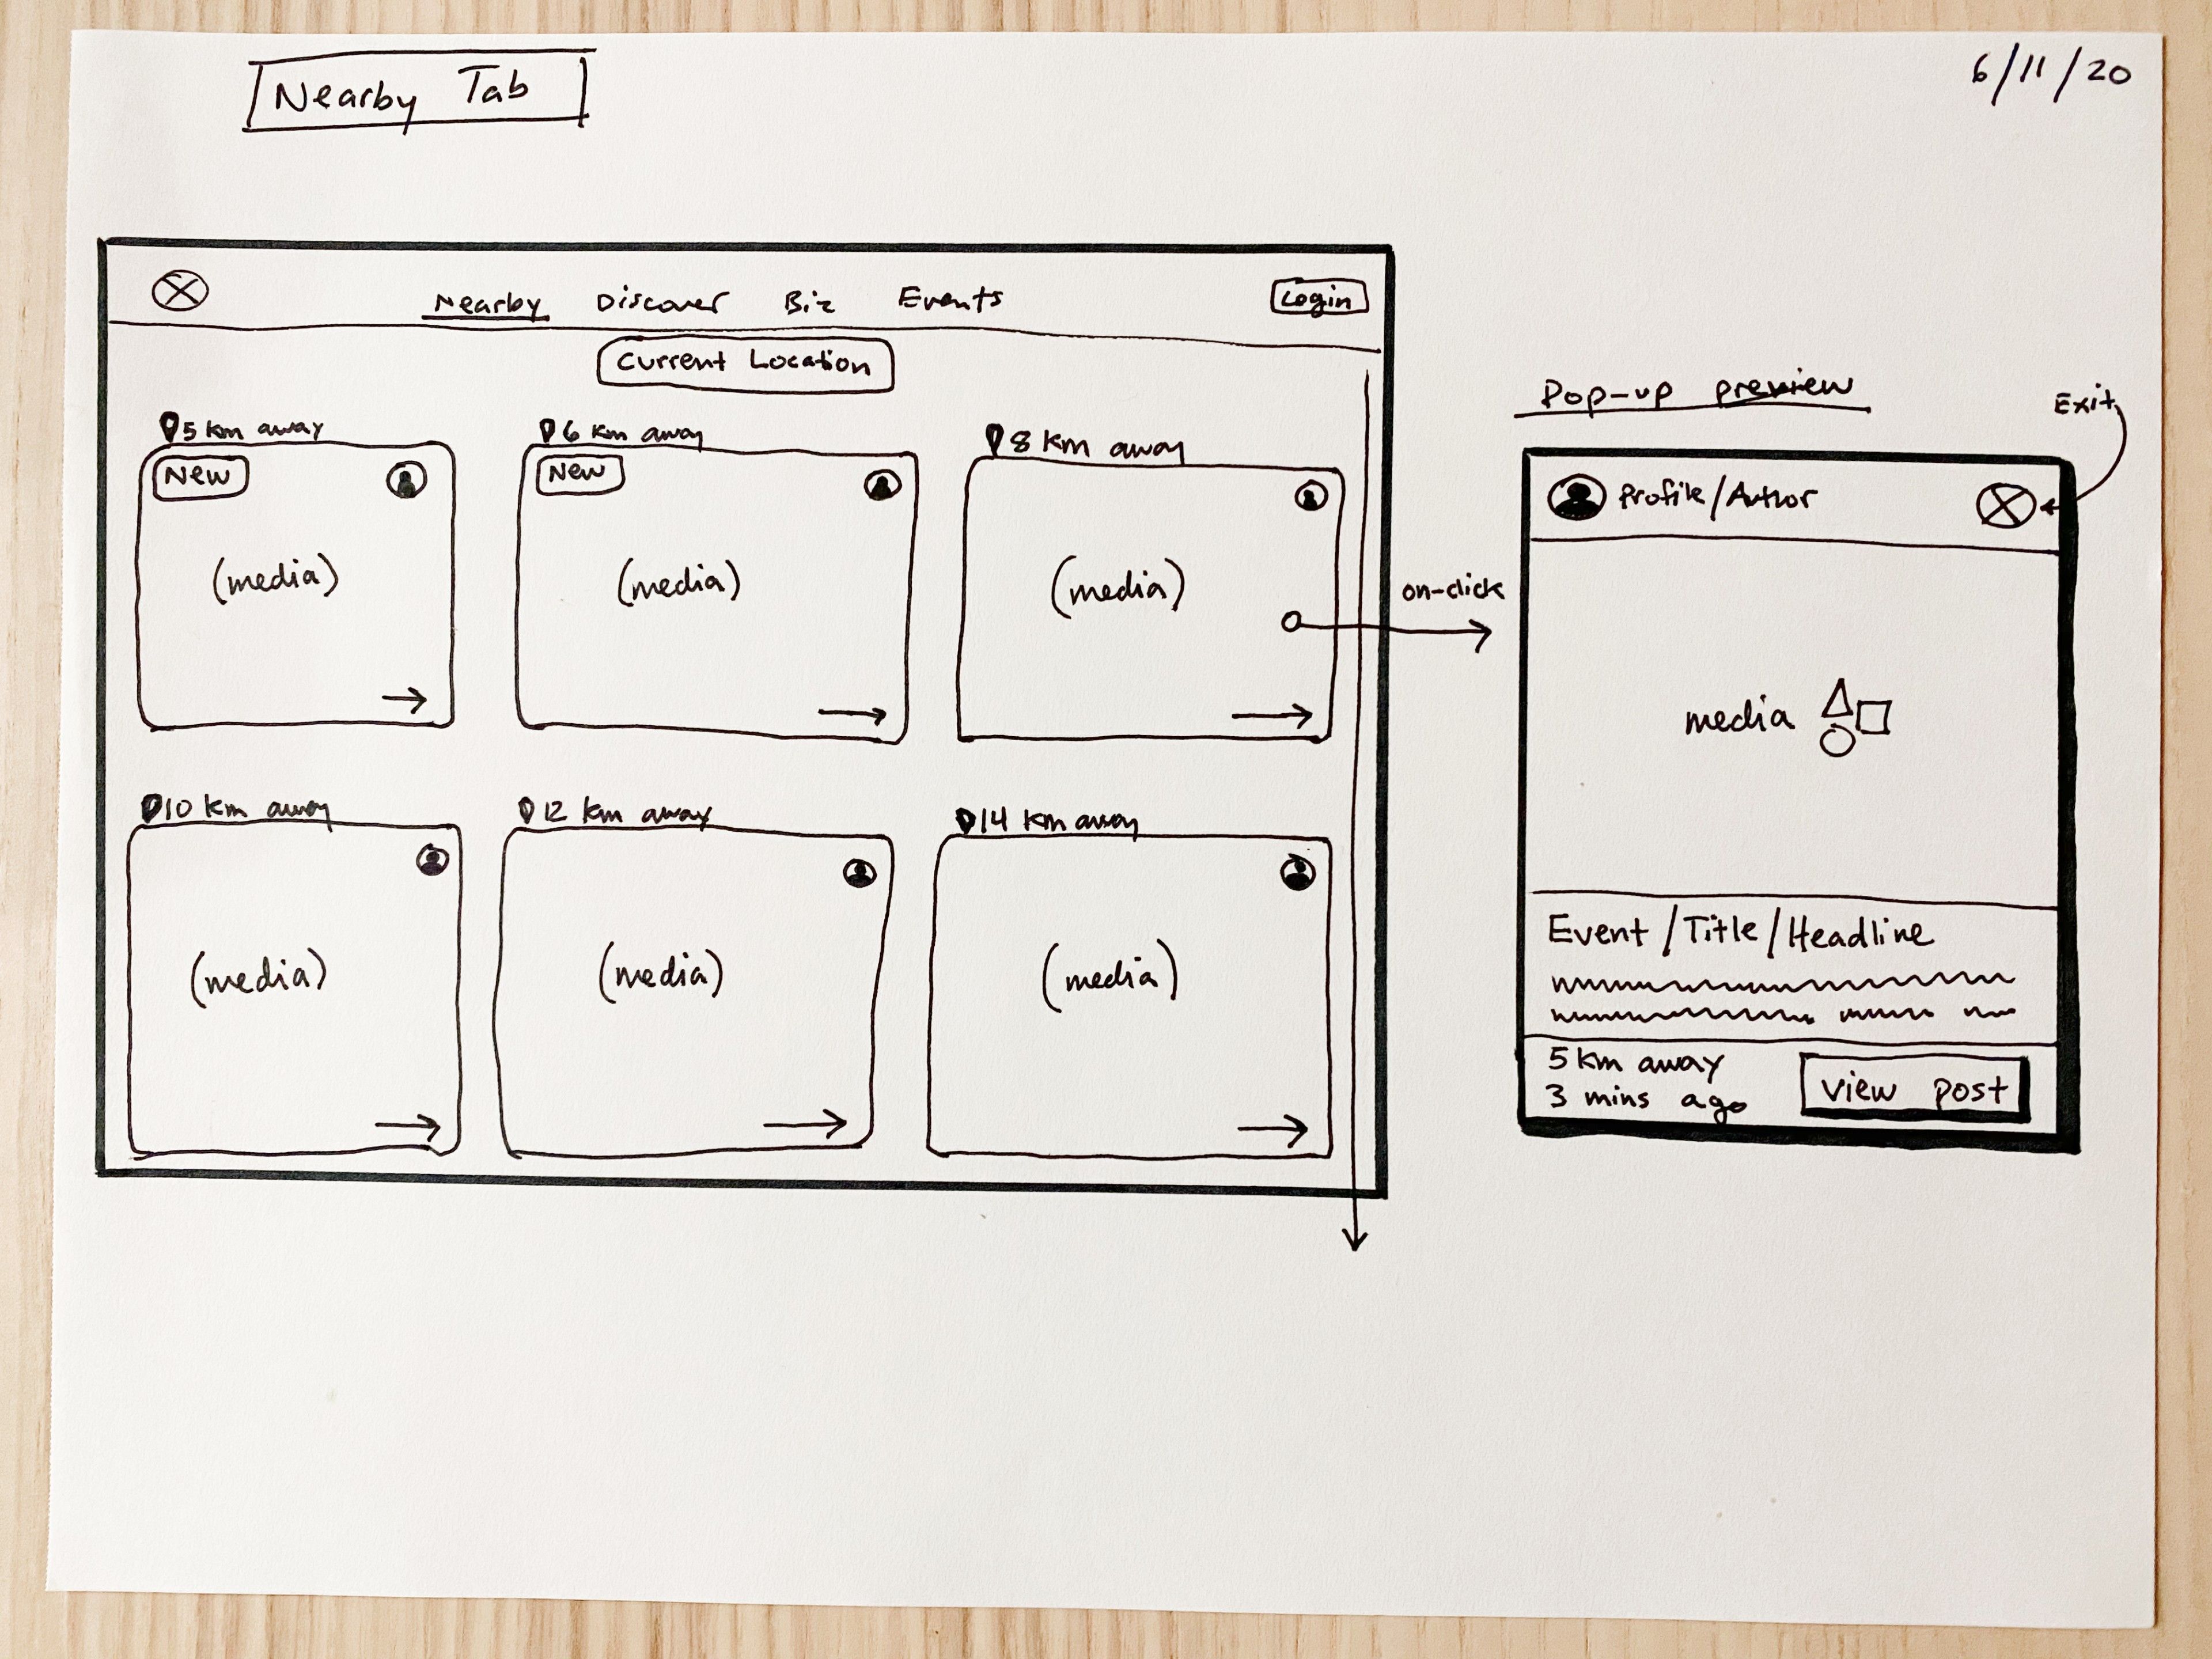 Nearby Tab
6/11/20
Nearby Discover Biz Events Login
Current Location
5 km away
6 km away
8 km away
New
New
(media)
(media)
(media)
on-click
10 km away
12 km away
14 km away
(media)
(media)
(media)
Pop-up preview
Exit
Profile/Author
media
Event/Title/Headline
5 km away
3 mins ago
view post